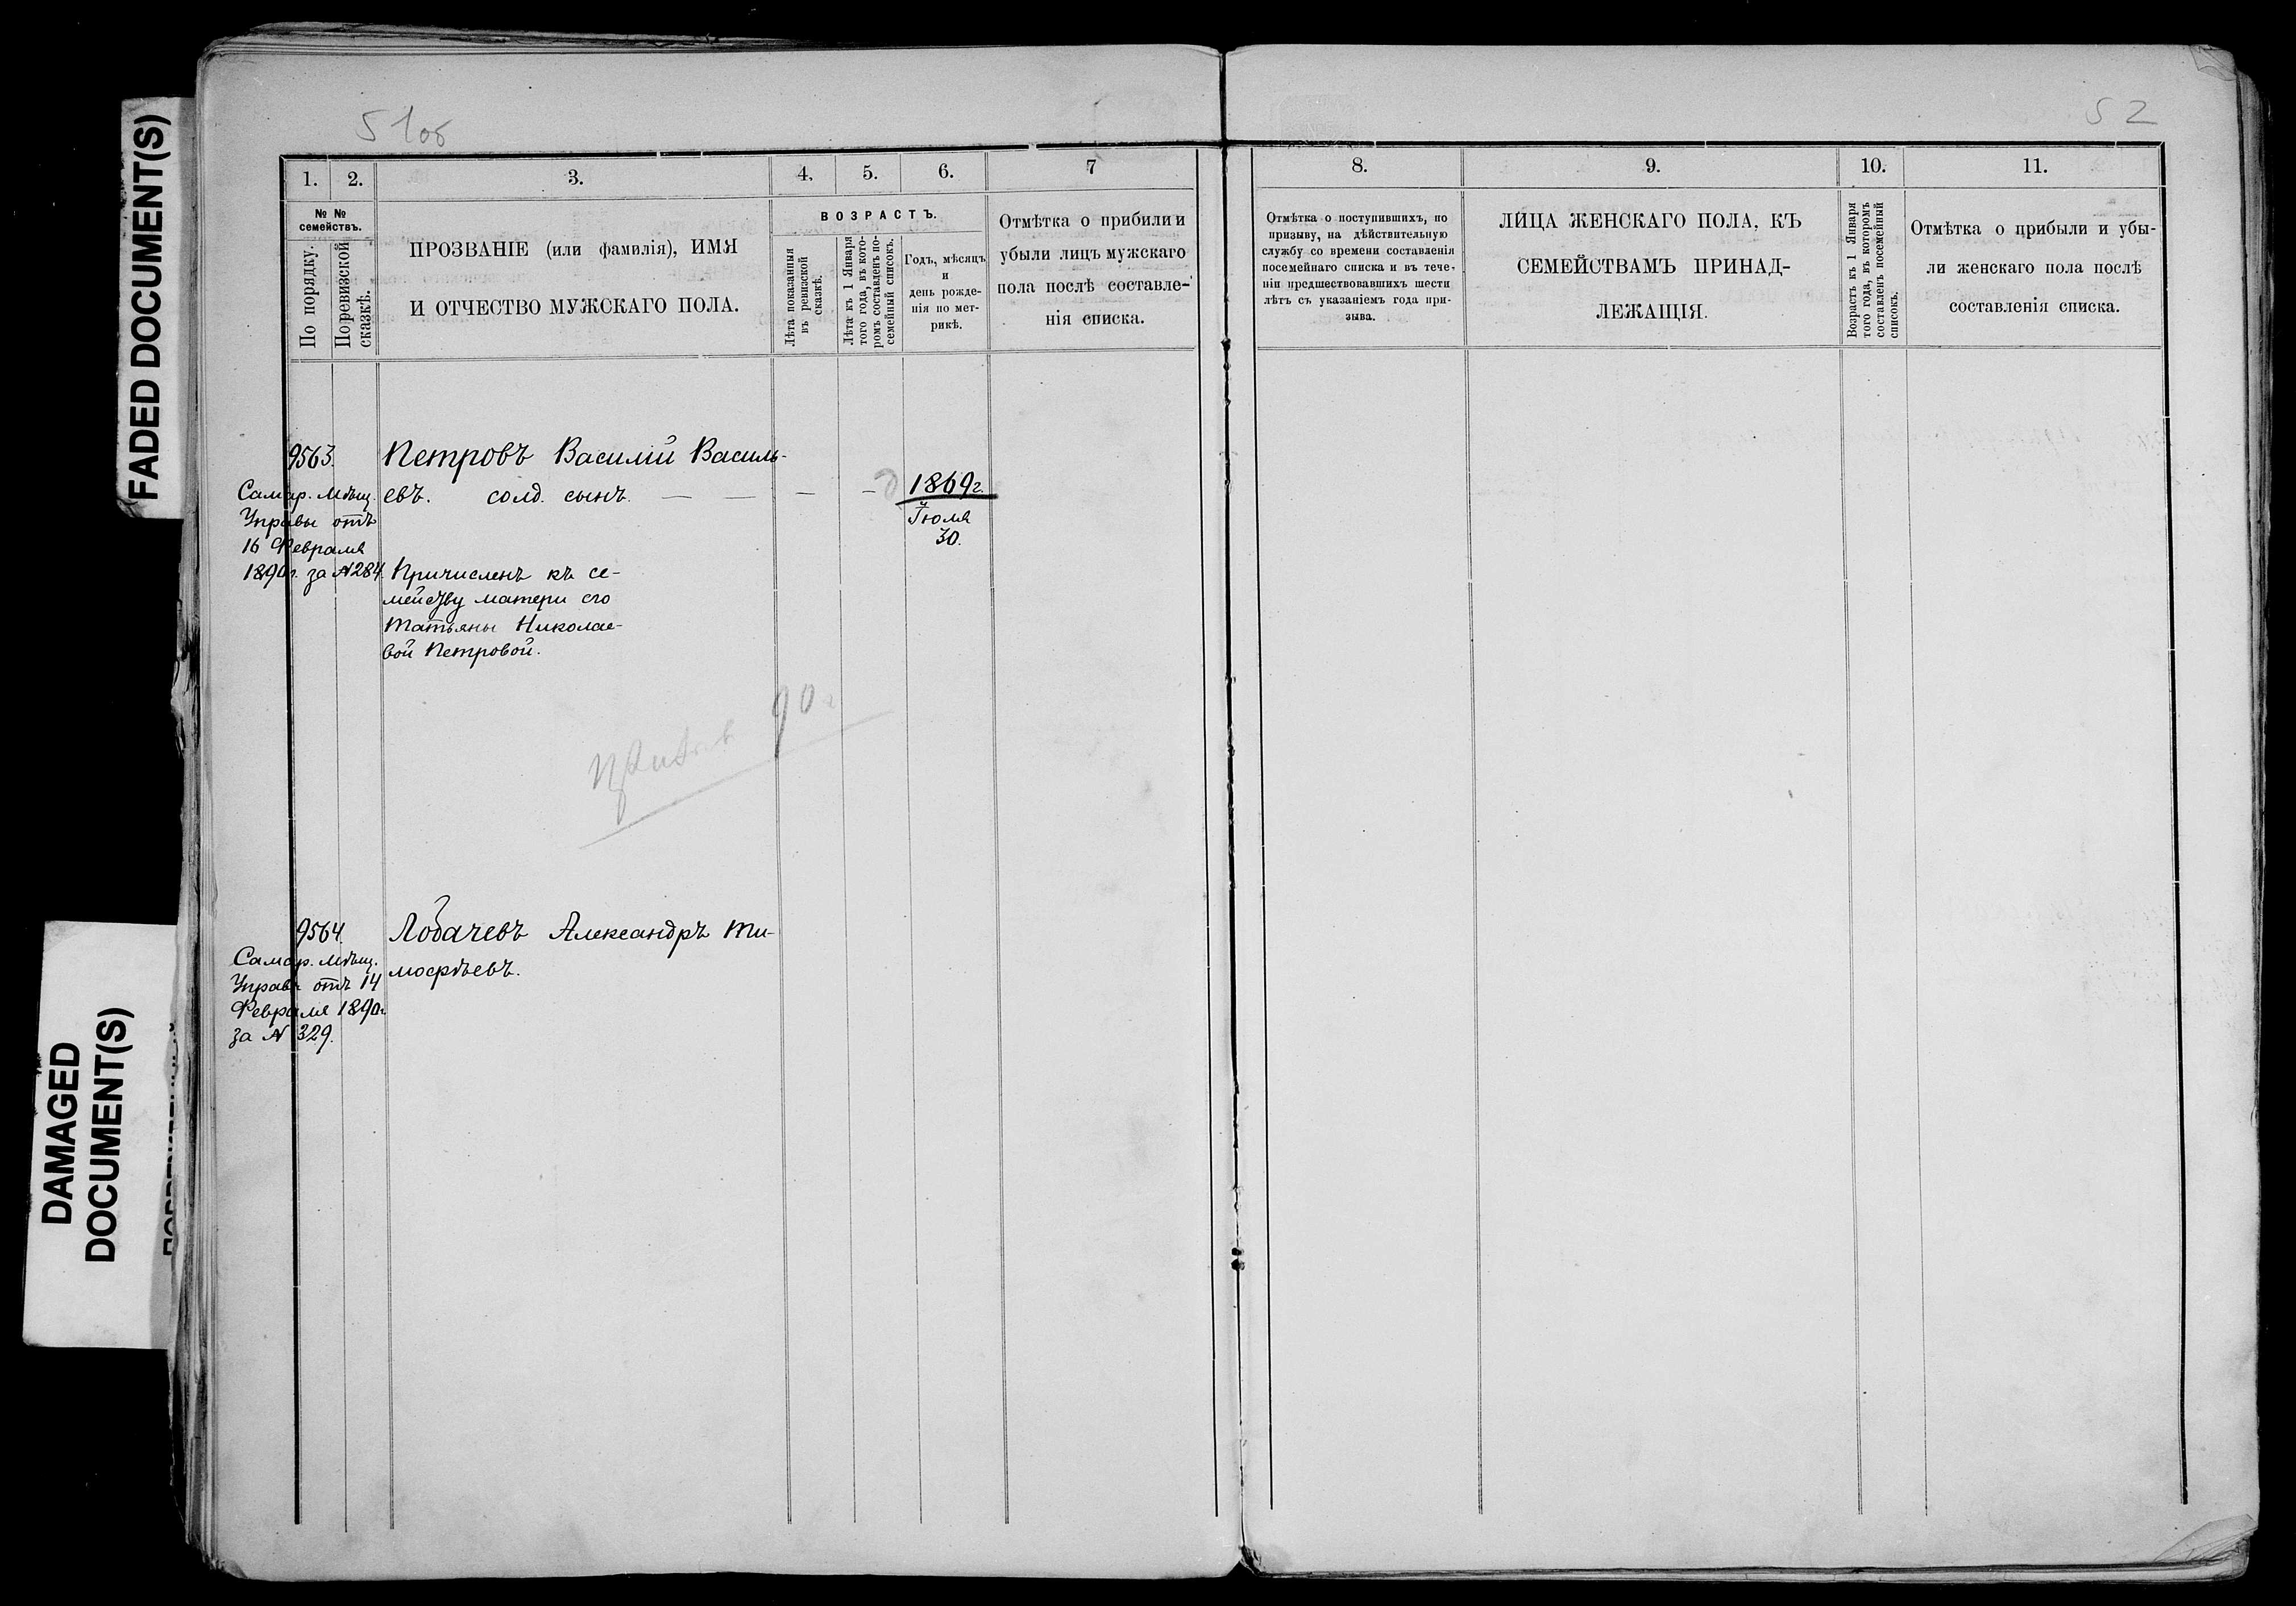 FADED DOCUMENT(S)
DAMAGED
DOCUMENT(S)
51об
52
1.
2.
3.
4.
5.
6.
7
№ №
семействъ.
По порядку.
По ревизской
сказкѣ.
ПРОЗВАНІЕ (или фамилія), ИМЯ
И ОТЧЕСТВО МУЖСКАГО ПОЛА.
ВОЗРАСТЪ.
Лѣта показанныя
въ ревизской
сказкѣ.
Лѣта къ 1 Января
того года, въ кото-
ромъ составленъ по-
семейный списокъ.
Годъ, мѣсяцъ
и
день рожде-
нія по мет-
рикѣ.
Отмѣтка о прибыли и
убыли лицъ мужскаго
пола послѣ составле-
нія списка.
8.
9.
10.
11.
Отмѣтка о поступившихъ, по
призыву, на дѣйствительную
службу со времени составленія
посемейнаго списка и въ тече-
ніи предшествовавшихъ шести
лѣтъ съ указаніемъ года при-
зыва.
ЛИЦА ЖЕНСКАГО ПОЛА, КЪ
СЕМЕЙСТВАМЪ ПРИНАД-
ЛЕЖАЩІЯ.
Возрастъ къ 1 Января
того года, въ которомъ
составленъ посемейный
списокъ.
Отмѣтка о прибыли и убы-
ли женскаго пола послѣ
составленія списка.
9563.
Самар. Мѣщ.
Управы отъ
16 Февраля
1890г. за №284
Петровъ Василій Василь-
евъ. солд. сынъ. — — — —
1869г.
Іюля
30.
Причисленъ къ се-
мейству матери его
Татьяны Николае-
вой Петровой.
90г
9564.
Самар. Мѣщ.
Управы отъ 14
Февраля 1890г
за № 329.
Лобачевъ Александръ Ти-
мофѣевъ.